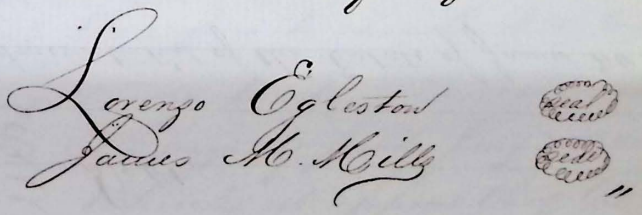 Lorenzo Egleston Seal
James M. Mills Seal